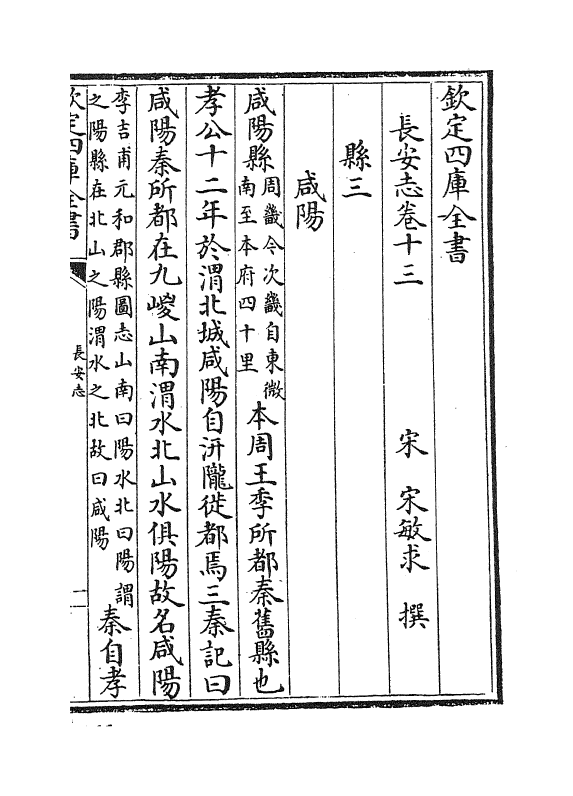 欽定四庫全書
長安志卷十三
宋 宋敏求 撰
縣三
咸陽
咸陽縣
周畿今次畿自東微
南至本府四十里
本周王季所都秦舊縣也
孝公十二年於渭北城咸陽自汧隴徙都焉三秦記曰
咸陽秦所都在九嵕山南渭水北山水俱陽故名咸陽
李吉甫元和郡縣圖志山南曰陽水北曰陽謂
之陽縣在北山之陽渭水之北故曰咸陽
秦自孝
欽定四庫全書
長安志
一